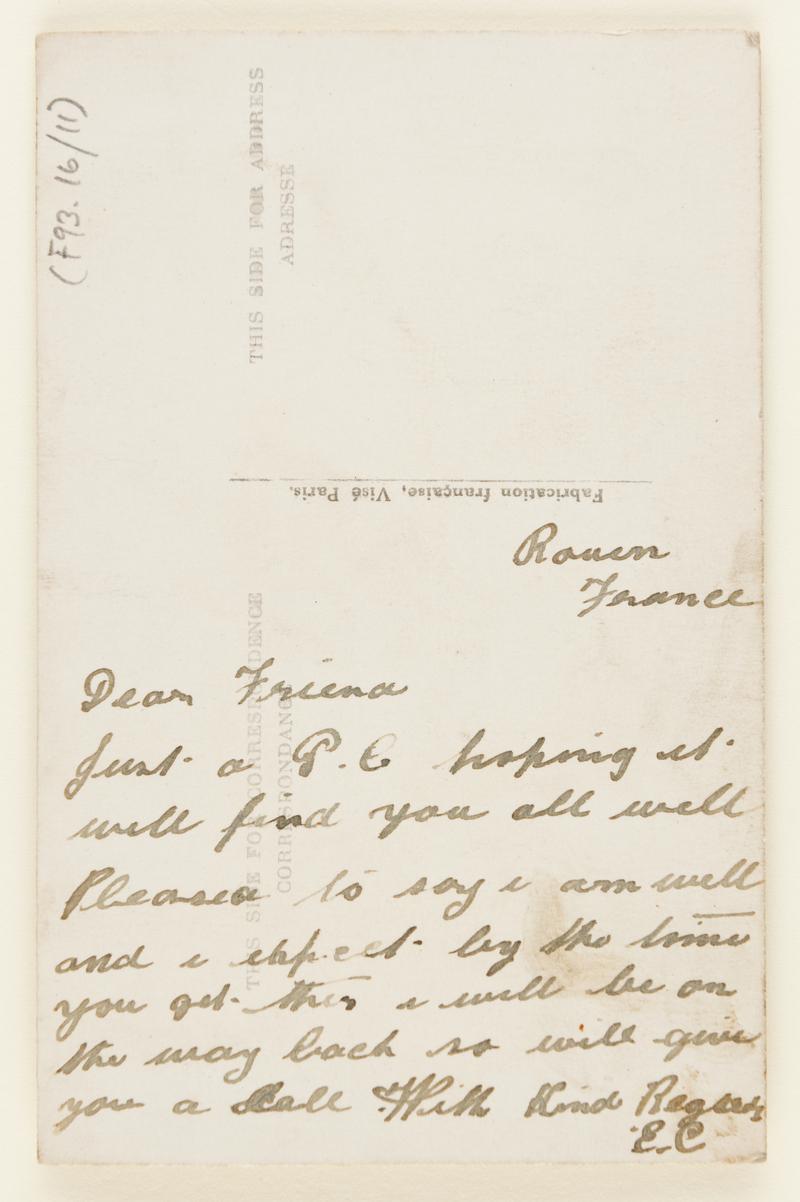 (F93.16/11)
THIS SIDE FOR ADDRESS
ADRESSE
Fabrication française, Visé Paris.
THIS SIDE FOR CORRESPONDENCE
CORRESPONDANCE
Rouen
France
Dear Friend
Just a P.C hoping it
will find you all well
Pleased to say i am well
and i expect by the time
you get this i will be on
the way back so will give
you a call With Kind Regards
E.C